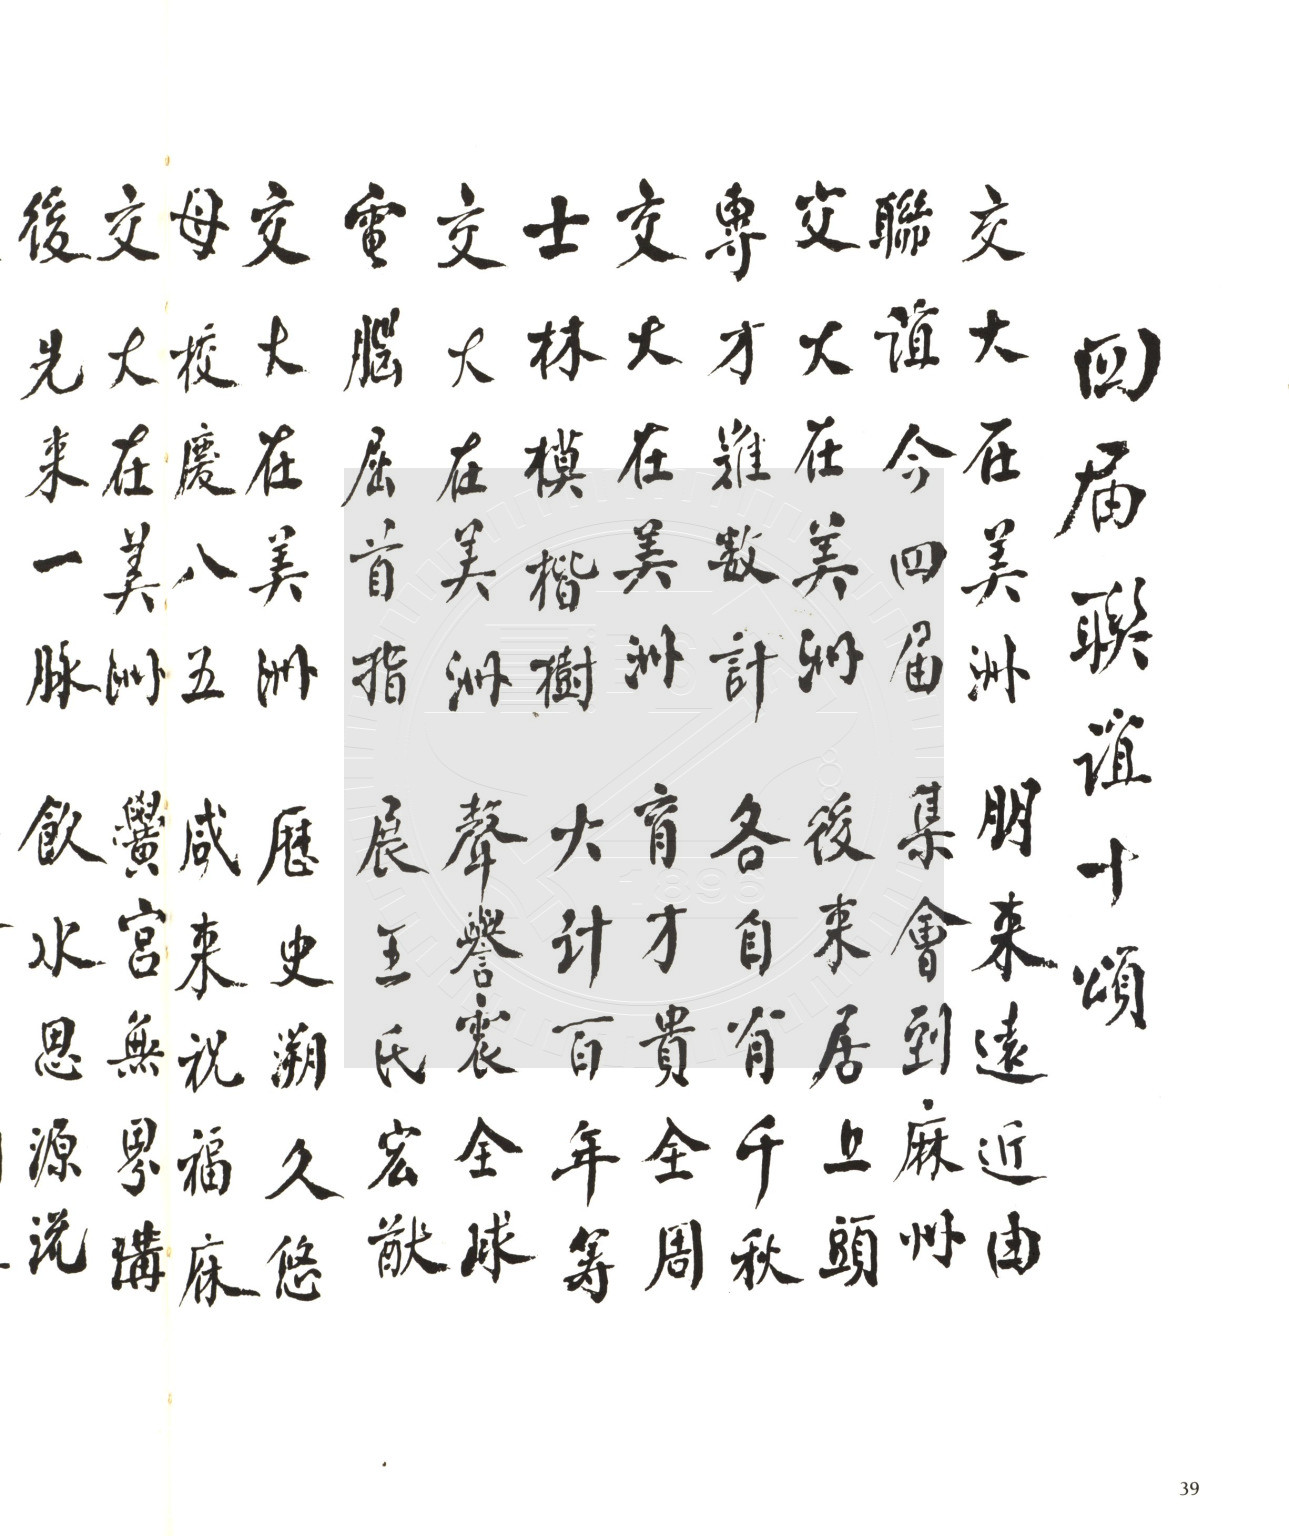 四届聯誼十頌
交大在美洲 朋来遠近由
聯誼今四届 集會到麻州
交大在美洲 後来居上頭
專才難数計 各自有千秋
交大在美洲 育才貴全周
士林模楷樹 大计百年筹
交大在美洲 聲譽震全球
電腦屈首指 展王氏宏猷
交大在美洲 歷史溯久悠
母校慶八五 咸来祝福庥
交大在美洲 黌宮無界
後先来一脉 飲水思源流
1896
39